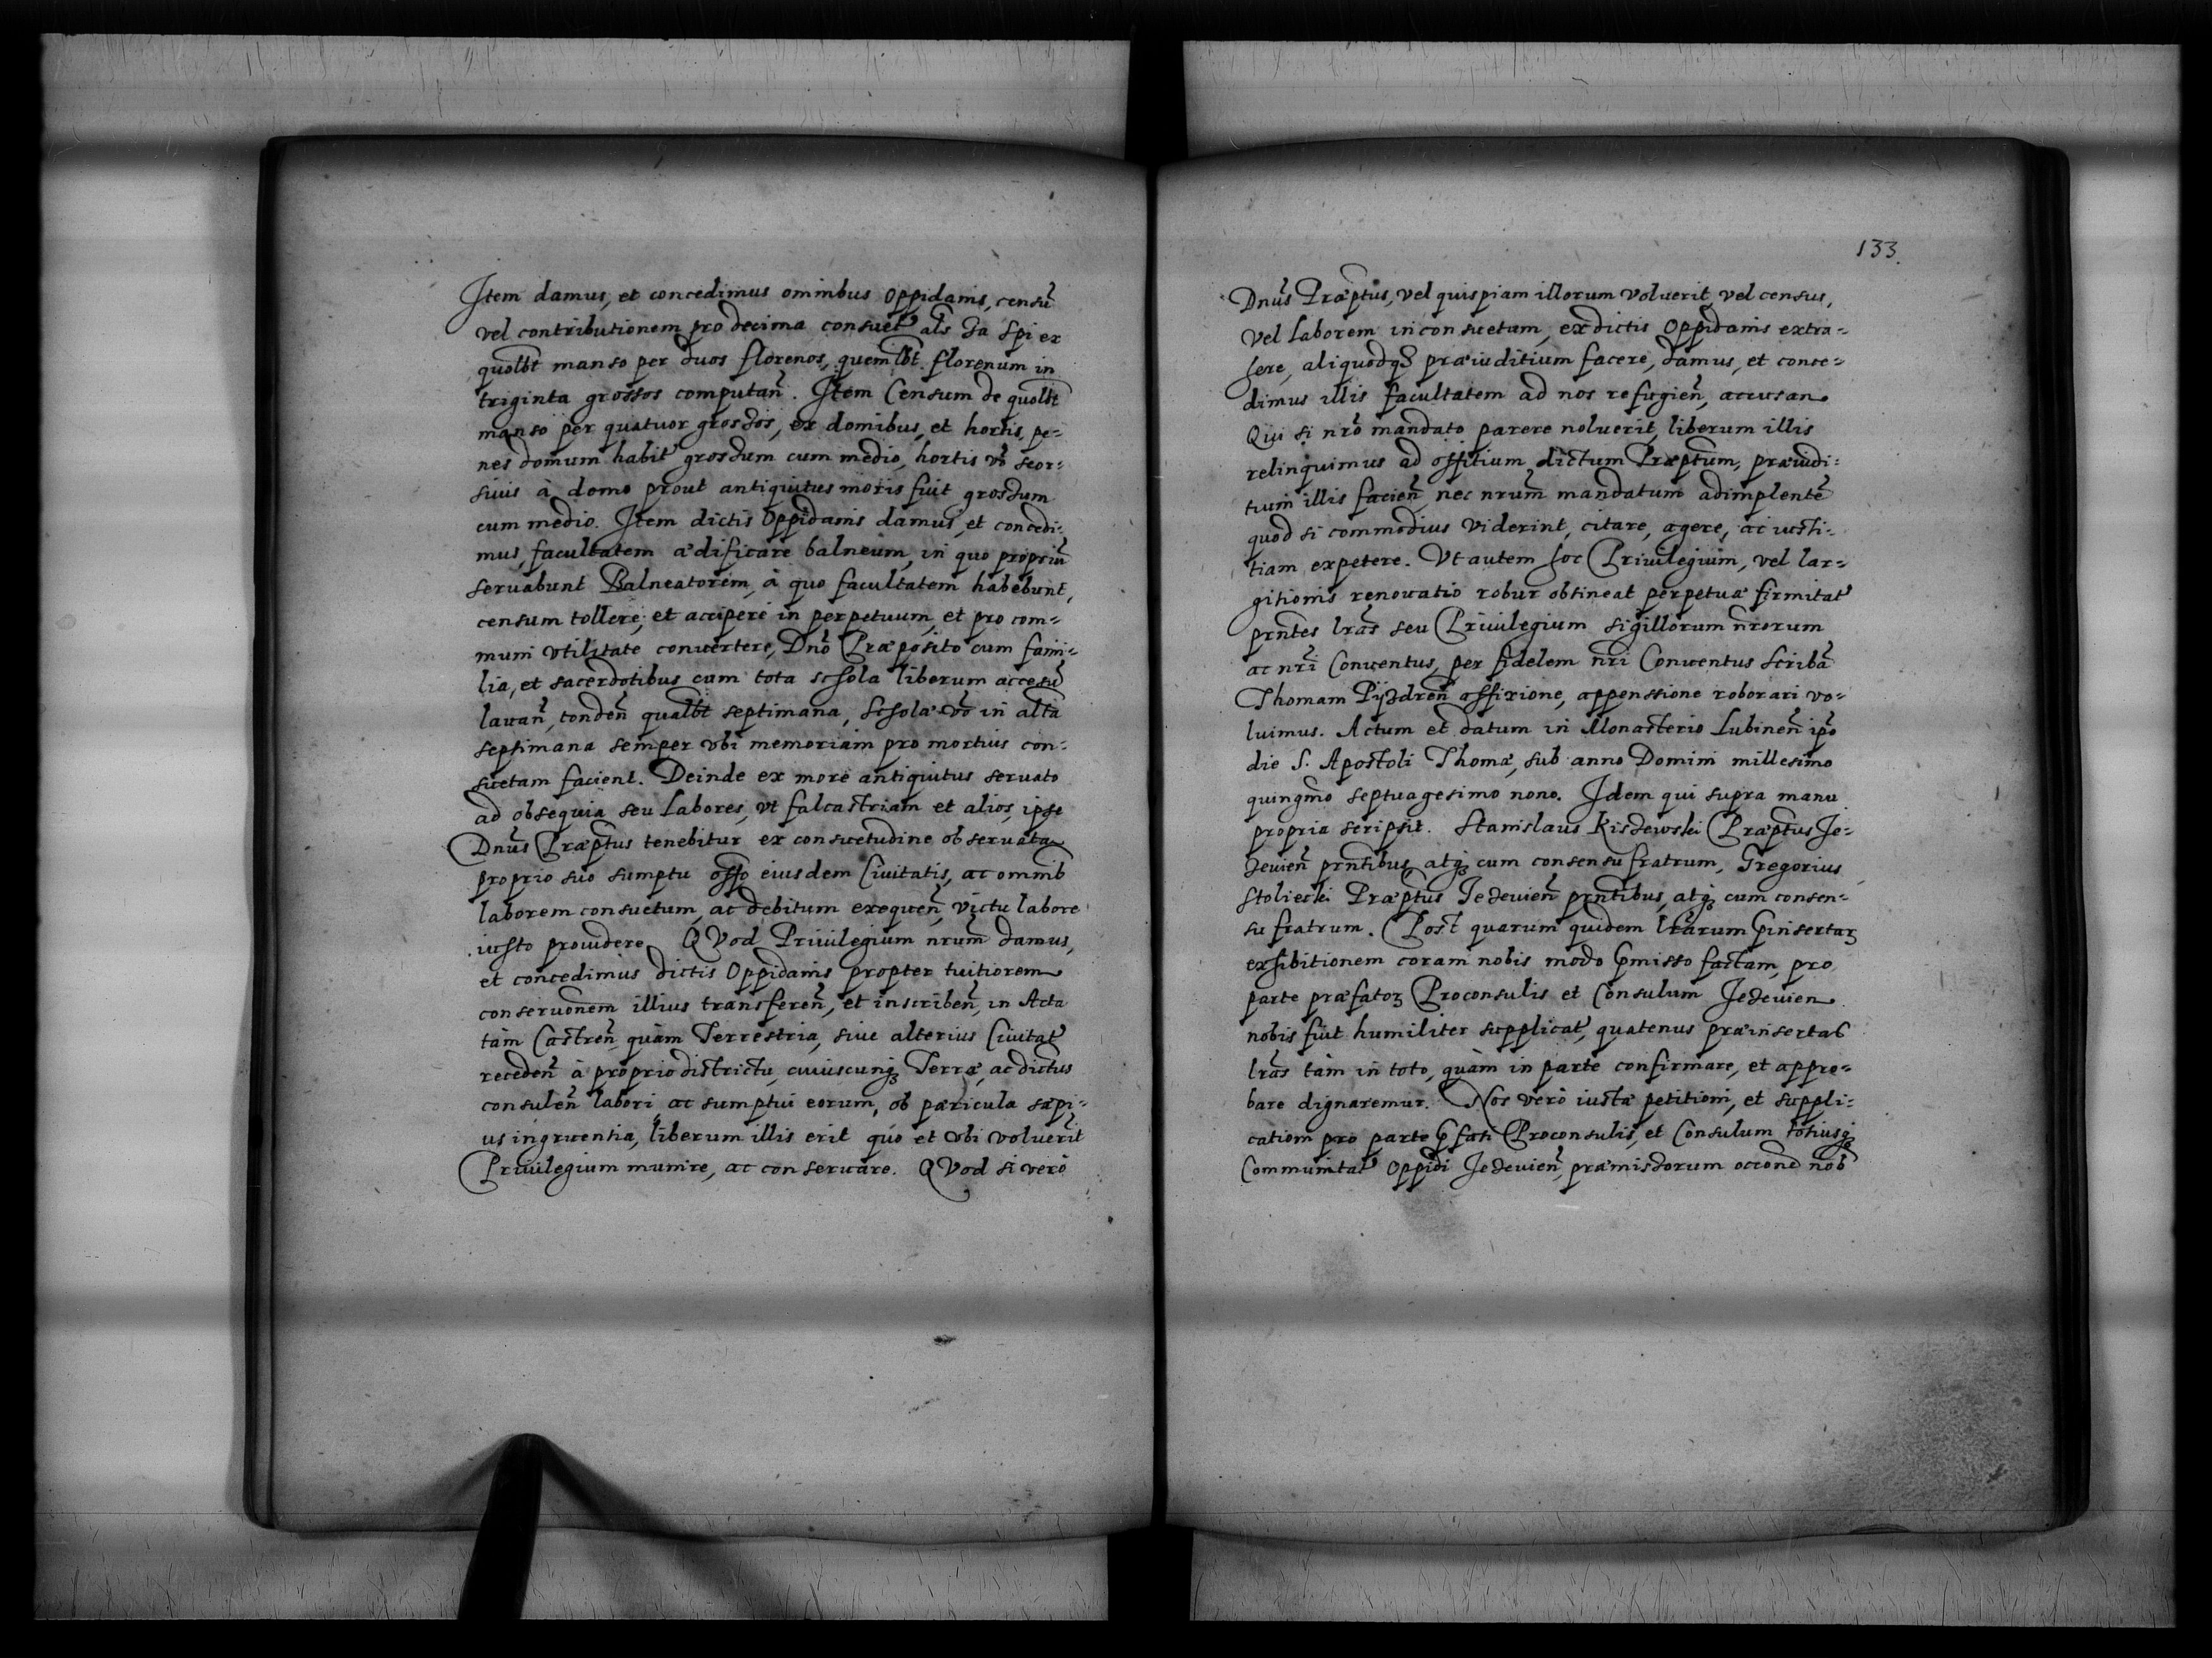 Item damus, et concedimus omnibus Oppidanis, censũ
vel contributionem pro decima consuet als Za Spi ex
quolbt manso per duos florenos, quemlbt florenum in
triginta grossos computañ. Item Censum de quolbt
manso per quatuor grossos, ex domibus, et hortis, pe-
nes domum habit grossum cum medio, hortis võ seor-
siuis à domo prout antiquitus moris fuit grossum
cum medio. Item dictis Oppidanis damus, et concedi-
mus, facultatem ædificare balneum, in quo propriũ
seruabunt Balneatorem, à quo facultatem habebunt,
censum tollere, et accipere in perpetuum, et pro com-
muni vtilitate conuertere, Dnõ Præposito cum fami-
lia, et sacerdotibus cum tota schola liberum accesũ
lauañ, tondeñ qualbt septimana, Scholæ võ in altã
septimana semper vbi memoriam pro mortuis con-
suetam facient. Deinde ex more antiquitus seruato
ad obsequia seu Labores, vt falcastriam et alios, ipse
Dnũs Præptus tenebitur ex consuetudine obseruata
proprio suo sumptu offo eiusdem Ciuitatis, ac omnib
laborem consuetum, ac debitum exequeñ, victu labore
iusto prouidere. QVod Priuilegium nrum damus,
et concedimus dictis Oppidanis propter tuitiorem
conseruonem illius transfereñ, et inscribeñ, in Acta
tàm Castreñ quàm Terrestria, siue alterius Ciuitat
recedeñ à proprio districtu, cuiuscunq Terræ, ac dictus
consuleñ labori, ac sumptui eorum, ob pæricula sæpi-
us ingruentia, liberum illis erit quo et vbi voluerit
Priuilegium munire, ac conseruare. QVod si verò
133.
Dnũs Præptus, vel quispiam illorum voluerit, vel census,
vel Laborem inconsuetum, ex dictis Oppidanis extra-
here, aliquodq præiuditium facere, damus, et conce-
dimus illis facultatem ad nos refugieñ, accusan
Qui si nrõ mandato parere noluerit, liberum illis
relinquimus ad offitium dictum Præptum, præiudi-
tium illis facieñ, nec nrum mandatum adimplentẽ
quod si commodius viderint, citare, agere, ac iusti-
tiam expetere. Vt autem hoc Priuilegium, vel lar-
gitionis renouatio robur obtineat perpetuæ firmitat
prntes lras seu Priuilegium sigillorum nrorum
ac nri Conuentus, per fidelem nri Conuentus Scribã
Thomam Pijzdreñ affixione, appenssione roborari vo-
luimus. Actum et datum in Monasterio Lubineñ ipõ
die S. Apostoli Thomæ, sub anno Domini millesimo
quingmo septuagesimo nono. Idem qui supra manu
propria scripsit. Stanislaus Kiszewski Præptus Je-
zeuieñ prntibus, atq cum consensu fratrum, Gregorius
Stoliecki Præptus Jezeuieñ prntibus, atq cum consen-
su fratrum. Post quarum quidem lrarum pinsertaz
exhibitionem coram nobis modo pmisso factam, pro
parte præfatoz Proconsulis et Consulum Jezeuien
nobis fuit humiliter supplicat, quatenus præinsertas
lras tàm in toto, quàm in parte confirmare, et appro-
bare dignaremur. Nos verò iustæ petitioni, et suppli-
cationi pro parte pfati Proconsulis, et Consulum totiusq
Communitat Oppidi Jezeuieñ, præmissorum occone nob